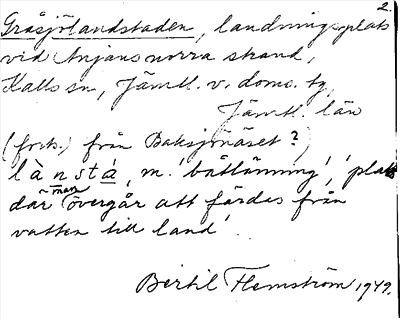 2
Gråsjölandstaden, landningsplats
vid Anjans norra strand,
Kalls sn, Jämtl. v. doms. tg,
Jämtl. län
(forts.) från Baksjönäset?
lànstá, m. 'båtlänning', 'plats
där man övergår att färdas från
vatten till land'.
Bertil Flemström 1949.